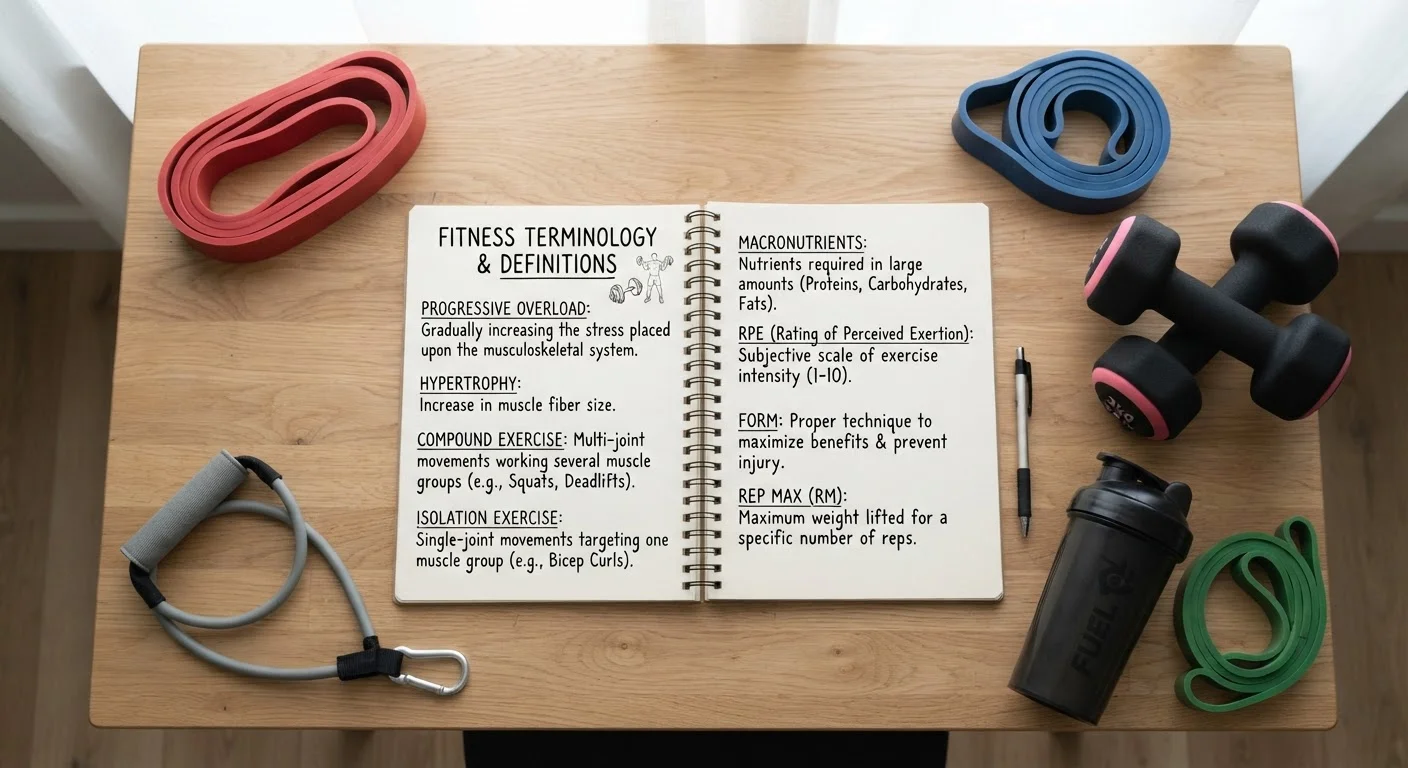 FITNESS TERMINOLOGY
& DEFINITIONS
PROGRESSIVE OVERLOAD:
Gradually increasing the stress placed
upon the musculoskeletal system.
HYPERTROPHY:
Increase in muscle fiber size.
COMPOUND EXERCISE: Multi-joint
movements working several muscle
groups (e.g., Squats, Deadlifts).
ISOLATION EXERCISE:
Single-joint movements targeting one
muscle group (e.g., Bicep Curls).
MACRONUTRIENTS:
Nutrients required in large
amounts (Proteins, Carbohydrates,
Fats).
RPE (Rating of Perceived Exertion):
Subjective scale of exercise
intensity (1-10).
FORM: Proper technique to
maximize benefits & prevent
injury.
REP MAX (RM):
Maximum weight lifted for a
specific number of reps.
FUEL